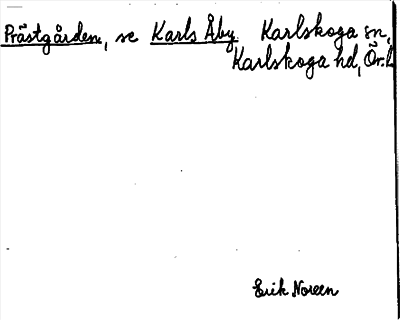 Prästgården, se Karls Åby Karlskoga sn,
Karlskoga hd, Ör.l
Erik Noreen